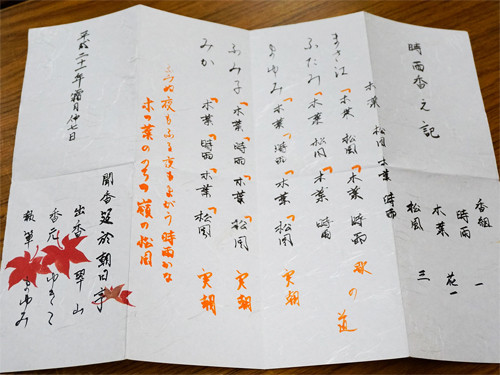 時雨香之記
香組
時雨 一
木葉 一
松風 三
木葉 松風 木葉 時雨
まさ江 木葉 松風 木葉 時雨 歌の道
ふたみ 木葉 木葉 時雨
まゆみ 木葉 時雨 木葉 松風 実朝
ふみ子 木葉 時雨 木葉 松風 実朝
みか 木葉 時雨 木葉 松風 実朝
ふらぬ夜もふる夜もまがう時雨かな
木の葉ののちの嶺の松風
平成二十一年霜月廿七日
聞香 於朝日亭
出香 翠山
香元 ゆきこ
執筆 まゆみ